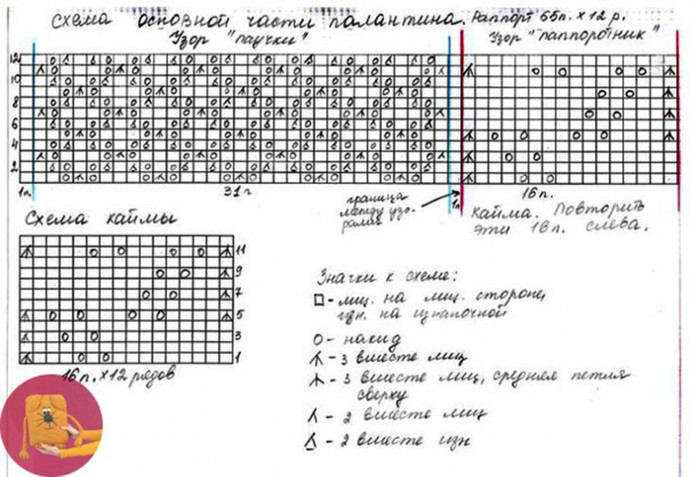 схема основной части палантина. Раппорт 65п. х 12 р.
Узор "паучки"
Узор "папоротник"
12
10
8
6
4
2
1п.
31п.
граница
между узо-
рами
1п.
16п.
Кайма. Повторить
эти 18п. слева.
Схема каймы
11
9
7
5
3
1
16 п. х 12 рядов
Значки к схеме:
- лиц. на лиц. стороне,
изн. на изнаночной
О - накид
- 3 вместе лиц
- 3 вместе лиц, средняя петля
сверху
- 2 вместе лиц
- 2 вместе изн